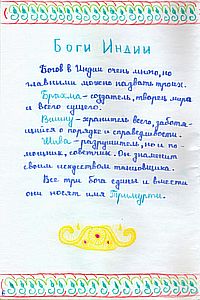 Боги Индии
Богов в Индии очень много, но
главными можно назвать троих.
Брахма - создатель, творец мира
и всего сущего.
Вишну - хранитель всего, заботя-
щийся о порядке и справедливости.
Шива - разрушитель, но и по-
мощник, советник. Он знаменит
своим искусством танцовщика.
Все три бога едины и вместе
они носят имя Тримурти.